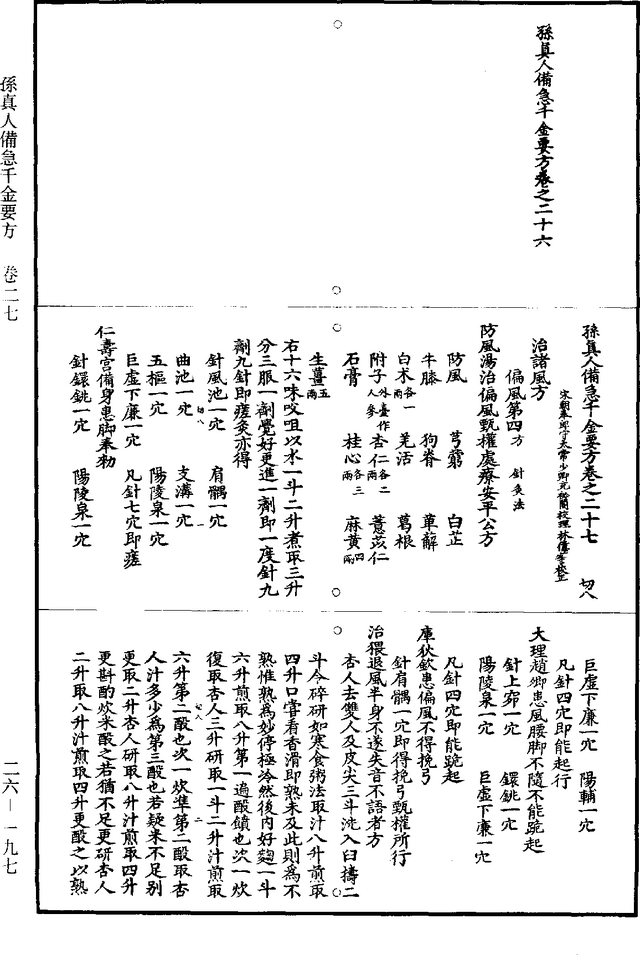 孫真人備急千金要方 卷二七
二六—一九七
孫真人備急千金要方卷之二十六
孫真人備急千金要方卷之二十七 切八
宋朝奉郎守太常少卿充秘閣校理林億等校正
治諸風方
偏風第四 方 針灸法
防風湯治偏風甄權處療安平公方
防風 芎藭 白芷
牛膝 狗脊 萆薢
白朮各一兩 羌活 葛根
附子外臺作人參 杏仁各二兩 薏苡仁
石膏 桂心各三兩 麻黃四兩
生薑五兩
右十六味㕮咀以水一斗二升煮取三升
分三服一劑覺好更進一劑即一度針九
劑九針即瘥灸亦得
針風池一穴 肩髃一穴
曲池一穴 支溝一穴
五樞一穴 陽陵泉一穴
巨虛下廉一穴 凡針七穴即瘥
仁壽宮備身患脚奉勑
針鐶銚一穴 陽陵泉一穴
巨虛下廉一穴 陽輔一穴
凡針四穴即能起行
大理趙卿患風腰脚不隨不能跪起
針上窌一穴 鐶銚一穴
陽陵泉一穴 巨虛下廉一穴
凡針四穴即能跪起
庫狄欽患偏風不得挽弓
針肩髃一穴即得挽弓甄權所行
治猥退風半身不遂失音不語者方
杏人去雙人及皮尖三斗洗入臼擣二
斗令碎研如寒食粥法取汁八升煎取
四升口嘗看香滑即熟未及此則為不
熟惟熟為妙停極冷然後內好麴一斗
六升煎取八升第一遍酘饙也次一炊
復取杏人三升研取一斗二升汁煎取
六升第二酘也次一炊準第二酘取杏
人汁多少為第三酘也若疑米不足別
更取二升杏人研取八升汁煎取四升
更斟酌炊米酘之若猶不足更研杏人
二升取八升汁煎取四升更酘之以熟